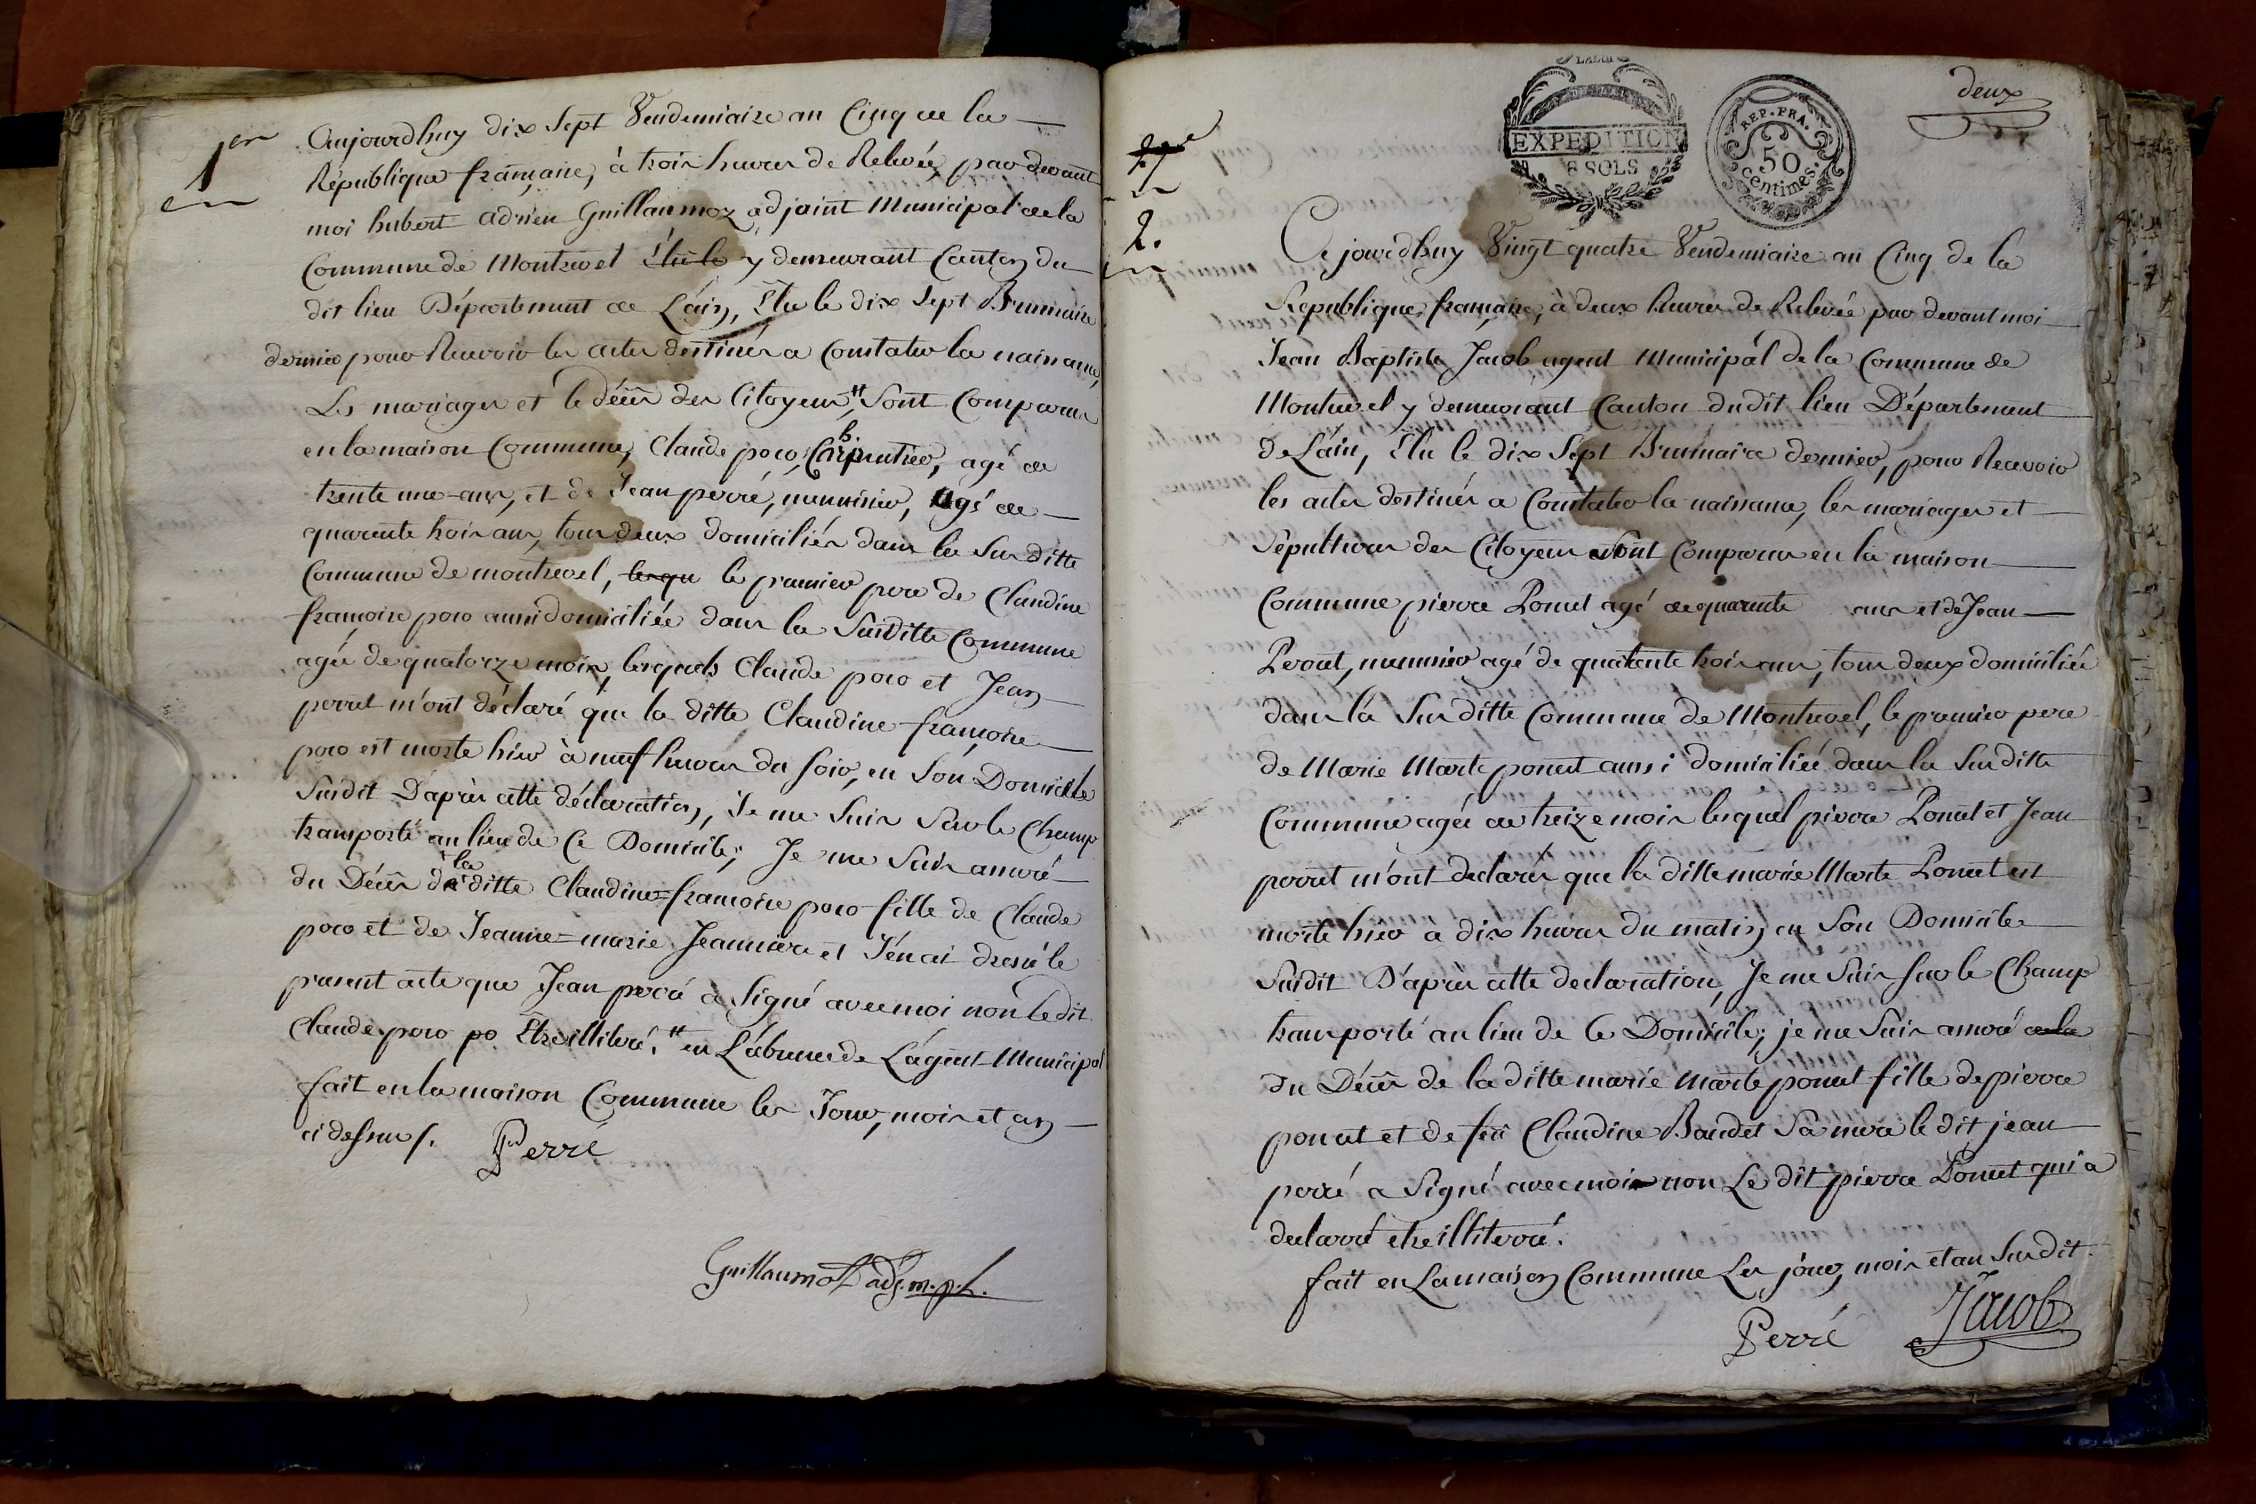 1er
Aujourdhuy dix Sept Vendemiaire an Cinq de la
République française, à trois heures de Relevée, par devant
moi hubert adrien Guillaumoz adjoint Municipal de la
Commune de Montrevel Élu le y demeurant Canton du
dit lieu Département de L'ain, Élu le dix Sept Brumaire
dernier pour Recevoir les actes destinés a Constater la naissance,
Les mariages et le décès des Citoyens, Sont Comparus
en la maison Commune, Claude poro, Charpentier, agé de
trente une ans, et de Jean perré, menuisier, agé de
quarente trois ans, tous deux domiciliés dans la Sus ditte
Commune de montrevel, lesqu le premier pere de Claudine
françoise poro aussi domiciliée dans la Susditte Commune
agée de quatorze mois, lesquels Claude poro et Jean
perret m'ont déclaré que la ditte Claudine françoise
poro est morte hier à neuf heures du soir, en Son Domicile
Susdit D'après cette déclaration, Je me Suis Sur le Champ
transporté au lieu de Ce Domicile, Je me Suis assuré
du Décès de la ditte Claudine=francoise poro fille de Claude
poro et de Jeanne=marie Jeanniere et J'en ai dressé le
present acte que Jean perré a Signé avec moi non Le dit
Claude poro po Etre illiteré. en L'absence de L'agent Municipal
fait en la maison Commune les Jour, mois et an
ci dessus /. Perré
Guillaumot adj. m. p. l.
deux
EXPEDITION
8 SOLS
REP. FRA.
50
centimes.
2.
Ce jourdhuy Vingt quatre Vendemiaire an Cinq de la
Republique française, à deux heures de Relevée par devant moi
Jean Baptiste Jacob agent Municipal de la Commune de
Montrevel y demeurant Canton du dit lieu Département
de L'ain, Élu le dix Sept Brumaire dernier, pour Recevoir
les actes destinés a Constater la naissance, les mariages et
Sépultures des Citoyens Sont Comparus en la maison
Commune pierre Ponset agé de quarente ans et de Jean
Perret, menuisier agé de quarante trois ans, tous deux domiciliés
dans la Sus ditte Commune de Montrevel, le premier pere
de Marie Marte ponset aussi domiciliée dans la Sus ditte
Commune agée de treize mois lesquel pierre Ponset et Jean
perret m'ont declarés que la ditte marie Marte Ponset est
morte hier a dix heures du matin, en Son Domicile
Susdit D'après cette declaration, Je me Suis Sur le Champ
transporté au lieu de Ce Domicile; je me Suis assuré de la
du Décès de la ditte marie Marte ponset fille de pierre
ponset et de feu Claudine Baudet Sa mere le dit jean
perré a Signé avec moi non Le dit pierre Ponset qui a
declarré etre illiterré.
fait en La maison Commune Les jour, mois et an Susdit.
Perré Jacob